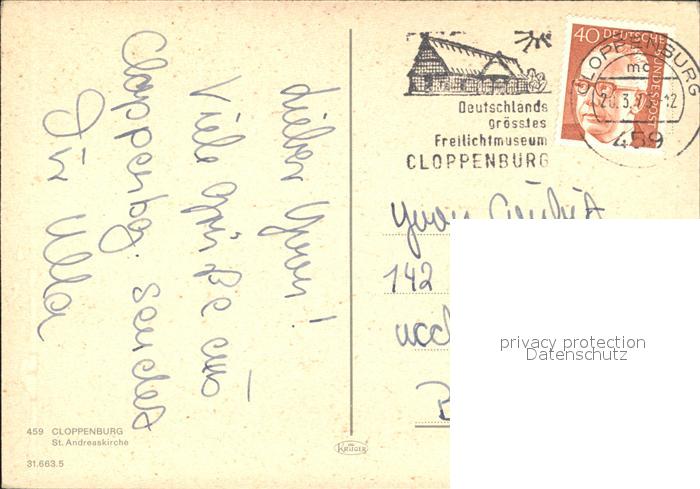 Lieber Yvan!
Viele Grüße aus
Cloppenbg. sendet
Dir Ulla
Deutschlands
grösstes
Freilichtmuseum
CLOPPENBURG
40 DEUTSCHE BUNDESPOST
CLOPPENBURG
mc
20.3.7 -12
459
Yvan
142
B
privacy protection
Datenschutz
459 CLOPPENBURG
St. Andreaskirche
31.663.5
KRÜGER